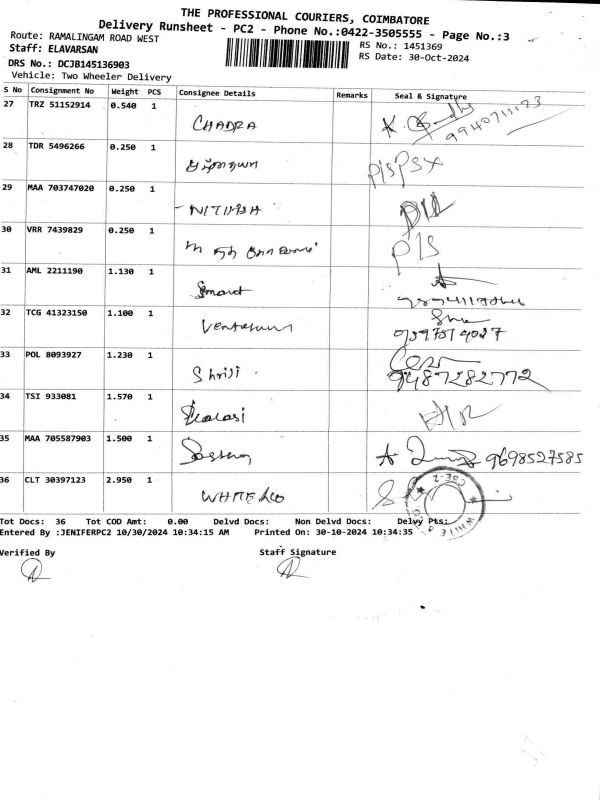 THE PROFESSIONAL COURIERS, COIMBATORE
Delivery Runsheet - PC2 - Phone No.:0422-3505555 - Page No.:3
Route: RAMALINGAM ROAD WEST RS No.: 1451369
Staff: ELAVARSAN RS Date: 30-Oct-2024
DRS No.: DCJB145136903
Vehicle: Two Wheeler Delivery
S No Consignment No Weight PCS Consignee Details Remarks Seal & Signature
27 TRZ 51152914 0.540 1 CHADRA 9940711123
28 TDR 5496266 0.250 1
29 MAA 703747020 0.250 1
30 VRR 7439829 0.250 1
31 AML 2211190 1.130 1
32 TCG 41323150 1.100 1
33 POL 8093927 1.230 1 Shriji 9487282772
34 TSI 933081 1.570 1
35 MAA 705587903 1.500 1 9698527585
36 CLT 30397123 2.950 1
Tot Docs: 36 Tot COD Amt: 0.00 Delvd Docs: Non Delvd Docs: Delvy Pts:
Entered By :JENIFERPC2 10/30/2024 10:34:15 AM Printed On: 30-10-2024 10:34:35
Verified By Staff Signature